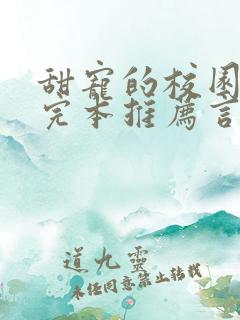 甜寵的校園
完本推薦言
道九靈
未经同意禁止转载